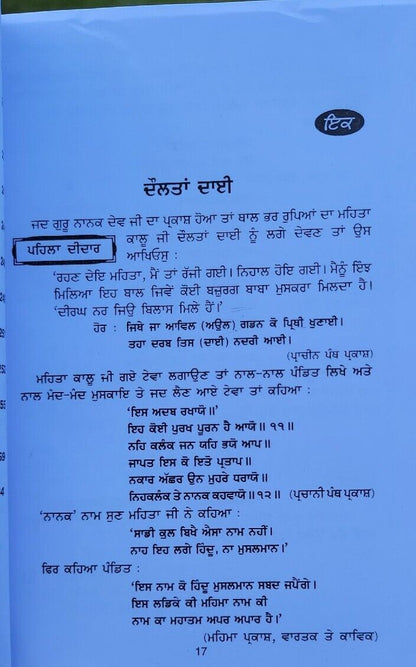 ਇਕ
ਦੌਲਤਾਂ ਦਾਈ
ਜਦ ਗੁਰੂ ਨਾਨਕ ਦੇਵ ਜੀ ਦਾ ਪ੍ਰਕਾਸ਼ ਹੋਆ ਤਾਂ ਬਾਲ ਭਰ ਰੁਪਿਆਂ ਦਾ ਮਹਿਤਾ
ਕਾਲੂ ਜੀ ਦੌਲਤਾਂ ਦਾਈ ਨੂੰ ਲਗੇ ਦੇਵਣ ਤਾਂ ਉਸ
ਪਹਿਲਾ ਦੀਦਾਰ
ਆਖਿਓਸੁ :
'ਰਹਣ ਦੇਇ ਮਹਿਤਾ, ਮੈਂ ਤਾਂ ਰੱਜੀ ਗਈ। ਨਿਹਾਲ ਹੋਇ ਗਈ। ਮੈਨੂੰ ਇੰਝ
ਮਿਲਿਆ ਇਹ ਬਾਲ ਜਿਵੇਂ ਕੋਈ ਬਜ਼ੁਰਗ ਬਾਬਾ ਮੁਸਕਰਾ ਮਿਲਦਾ ਹੈ।
'ਦੀਰਘ ਨਰ ਜਿਉ ਬਿਲਾਸ ਮਿਲੇ ਹੈਂ।'
ਹੋਰ : ਜਿਥੇ ਜਾ ਆਵਿਲ (ਅਉਲ) ਗਡਨ ਕੋ ਪ੍ਰਿਥੀ ਖੁਣਾਈ।
ਤਹਾ ਦਰਬ ਤਿਸ (ਦਾਈ) ਨਦਰੀ ਆਈ।
(ਪ੍ਰਾਚੀਨ ਪੰਥ ਪ੍ਰਕਾਸ਼)
ਮਹਿਤਾ ਕਾਲੂ ਜੀ ਗਏ ਟੇਵਾ ਲਗਾਉਣ ਤਾਂ ਨਾਲ-ਨਾਲ ਪੰਡਿਤ ਲਿਖੇ ਅਤੇ
ਨਾਲ ਮੰਦ-ਮੰਦ ਮੁਸਕਾਇ ਤੇ ਜਦ ਲੈਣ ਆਏ ਟੇਵਾ ਤਾਂ ਕਹਿਆ :
'ਇਸ ਅਦਬ ਰਖਾਯੋ॥
ਇਹ ਕੋਈ ਪੁਰਖ ਪੂਰਨ ਹੈ ਆਯੋ॥੧੧॥
ਨਹਿ ਕਲੰਕ ਜਨ ਯਹਿ ਭਯੋ ਆਪ॥
ਜਾਪਤ ਇਸ ਕੋ ਇਤੋ ਪ੍ਰਤਾਪ॥
ਨਕਾਰ ਅੱਛਰ ਉਨ ਮੁਹਰੇ ਧਰਾਯੋ॥
ਨਿਹਕਲੰਕ ਤੇ ਨਾਨਕ ਕਹਵਾਯੋ॥੧੨॥ (ਪ੍ਰਚਾਨੀ ਪੰਥ ਪ੍ਰਕਾਸ਼)
'ਨਾਨਕ' ਨਾਮ ਸੁਣ ਮਹਿਤਾ ਜੀ ਨੇ ਕਹਿਆ :
'ਸਾਡੀ ਕੁਲ ਬਿਖੈ ਐਸਾ ਨਾਮ ਨਹੀਂ।
ਨਾਹ ਇਹ ਲਗੇ ਹਿੰਦੂ, ਨਾ ਮੁਸਲਮਾਨ।'
ਫਿਰ ਕਹਿਆ ਪੰਡਿਤ :
'ਇਸ ਨਾਮ ਕੋ ਹਿੰਦੂ ਮੁਸਲਮਾਨ ਸਬਦ ਜਪੈਂਗੇ।
ਇਸ ਲੜਿਕੇ ਕੀ ਮਹਿਮਾ ਨਾਮ ਕੀ
ਨਾਮ ਕਾ ਮਹਾਤਮ ਅਪਰ ਅਪਾਰ ਹੈ।'
(ਮਹਿਮਾ ਪ੍ਰਕਾਸ਼, ਵਾਰਤਕ ਤੇ ਕਾਵਿਕ)
17